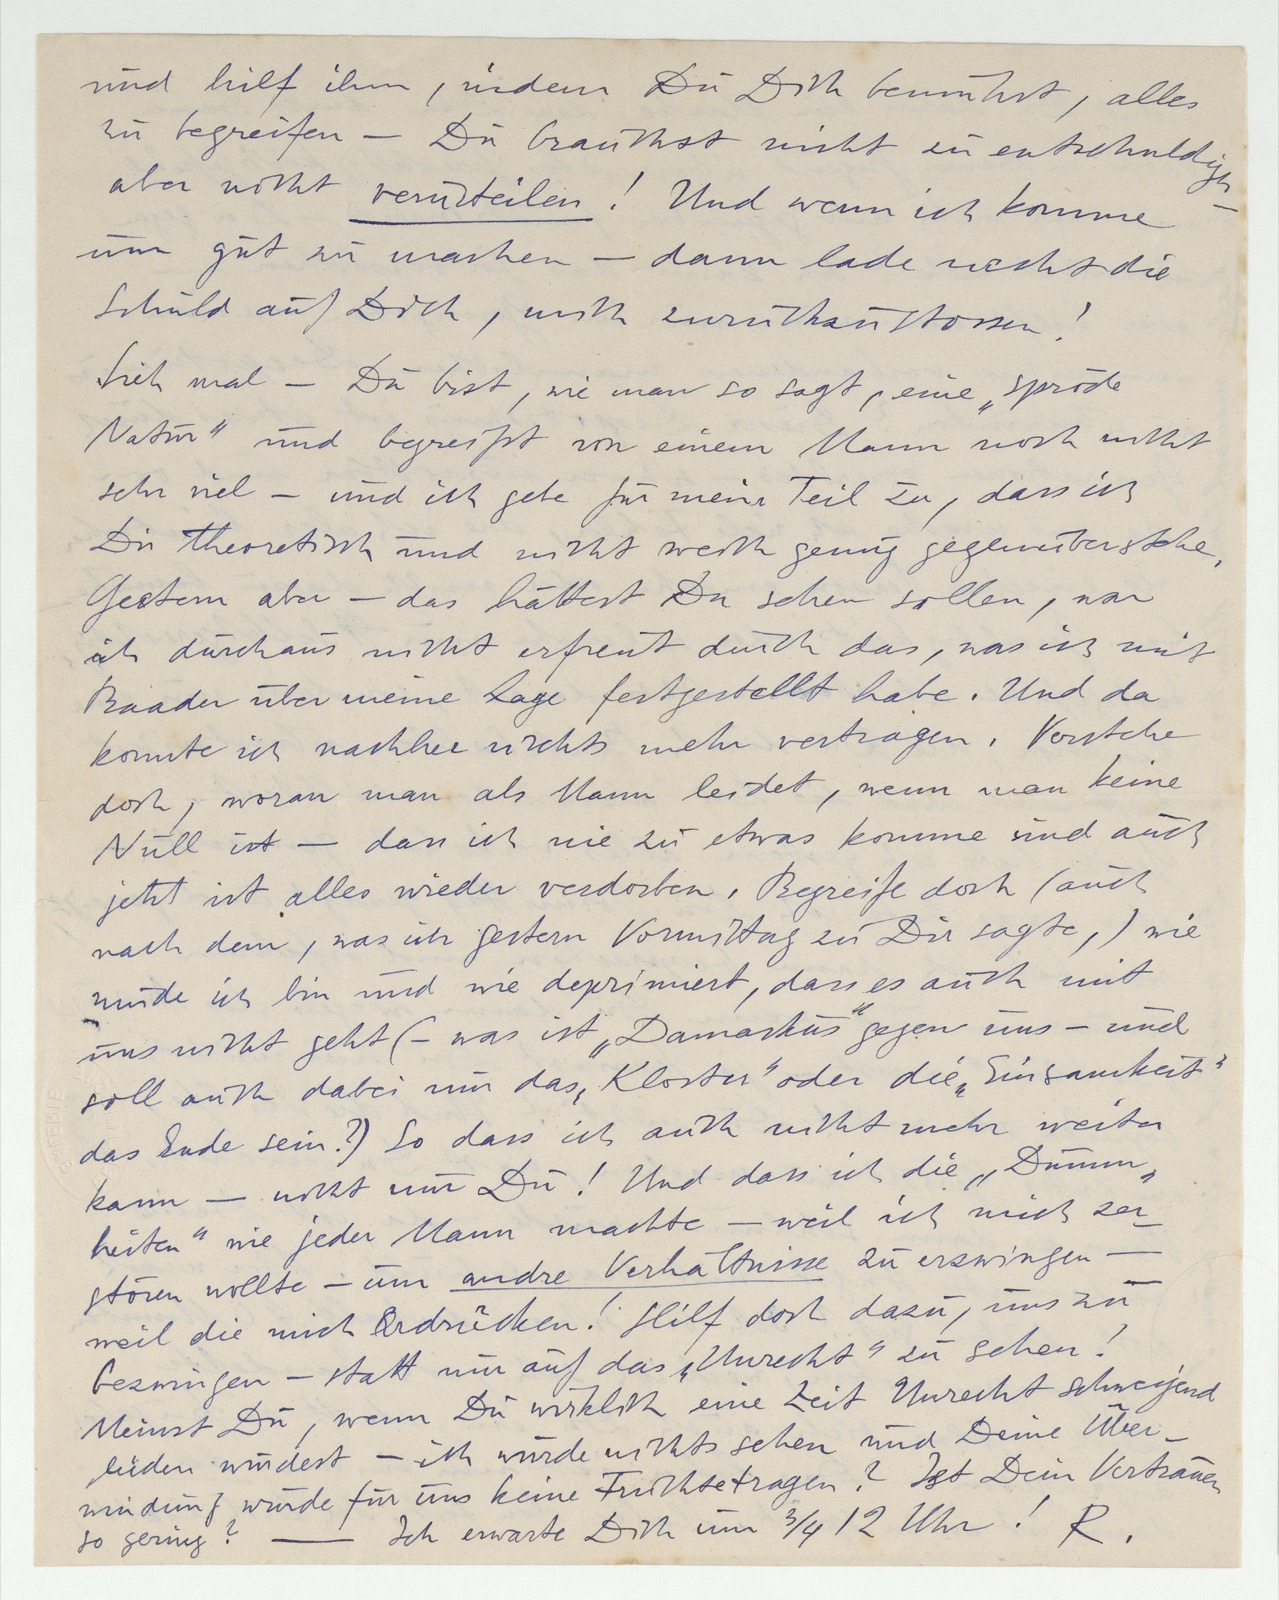 und hilf ihm, indem Du Dich bemühst, alles
zu begreifen — Du brauchst nicht zu entschuldigen
aber nicht verurteilen! Und wenn ich komme
um gut zu machen — dann lade nicht die
Schuld auf Dich, mich zurückzustossen!
Sieh mal — Du bist, wie man so sagt, eine „spröde
Natur“ und begreifst von einem Mann noch nicht
sehr viel — und ich gebe für mein Teil zu, dass ich
Dir theoretisch und nicht weich genug gegenüberstehe.
Gestern aber — das hättest Du sehen sollen, war
ich durchaus nicht erfreut durch das, was ich mit
Baader über meine Lage festgestellt habe. Und da
konnte ich nachher nichts mehr vertragen. Verstehe
doch, woran man als Mann leidet, wenn man keine
Null ist — dass ich nie zu etwas komme und auch
jetzt ist alles wieder verdorben. Begreife doch (auch
nach dem, was ich gestern Vormittag zu Dir sagte,) wie
müde ich bin und wie deprimiert, dass es auch mit
uns nicht geht (— was ist „Damaskus“ gegen uns — und
soll auch dabei nur das „Kloster“ oder die „Einsamkeit“
das Ende sein?) So dass ich auch nicht mehr weiter
kann — nicht nur Du! Und dass ich die „Dumm-
heiten“ wie jeder Mann machte — weil ich mich zer-
stören wollte — um andre Verhältnisse zu erzwingen —
weil die mich Erdrücken! Hilf doch dazu, uns zu
bezwingen — statt nur auf das „Unrecht“ zu sehen!
Meinst Du, wenn Du wirklich eine Zeit Unrecht schweigend
leiden würdest — ich würde nichts sehen und Deine Über-
windung würde für uns keine Früchte tragen? Ist Dein Vertrauen
so gering? — Ich erwarte Dich um 3/4 12 Uhr! R.